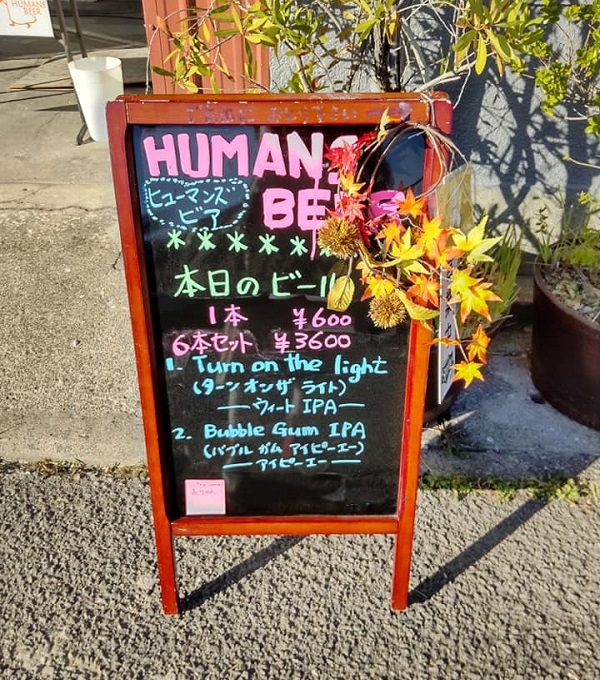 HUMANS
BEER
HUMANS
BEER
ヒューマンズ
ビア
******
本日のビール
1本 ¥600
6本セット ¥3600
1. Turn on the light
(ターン オン ザ ライト)
ウィート IPA
2. Bubble Gum IPA
(バブル ガム アイピーエー)
アイピーエー